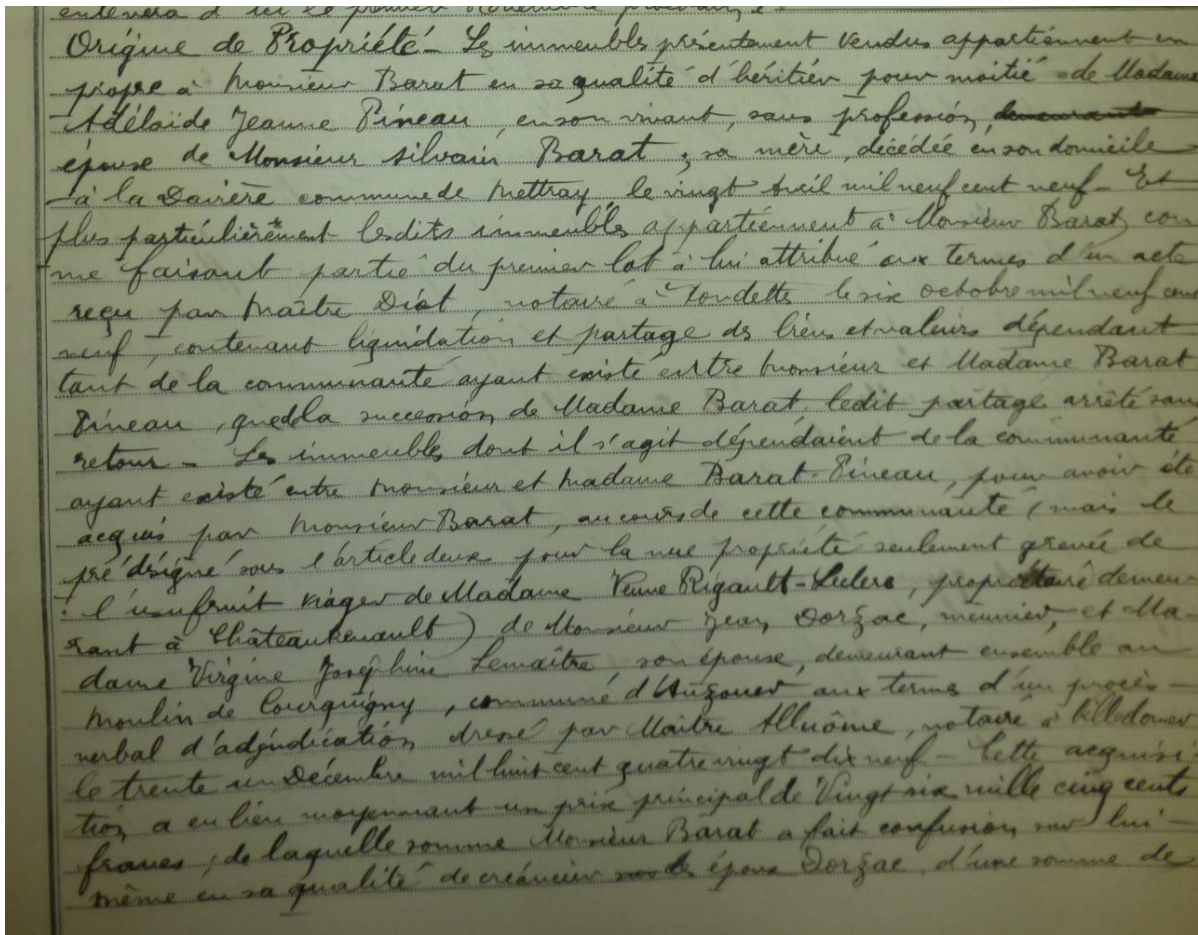 enlèvera d'ici le premier Novembre prochain
Origine de Propriété - Les immeubles présentement vendus appartiennent en
propre à Monsieur Barat en sa qualité d'héritier pour moitié de Madame
Adélaïde Jeanne Pineau, en son vivant, sans profession, demeurant
épouse de Monsieur Silvain Barat, sa mère, décédée en son domicile
à la Davière commune de Mettray le vingt Avril mil neuf cent neuf - Et
plus particulièrement lesdits immeubles appartiennent à Monsieur Barat, com
me faisant partie du premier lot à lui attribué aux termes d'un acte
reçu par Maître Diot, notaire à Fondettes le six octobre mil neuf cent
neuf, contenant liquidation et partage des biens et valeurs dépendant
tant de la communauté ayant existé entre Monsieur et Madame Barat
Pineau, que de la succession de Madame Barat, ledit partage arrêté sans
retour - Les immeubles dont il s'agit dépendaient de la communauté
ayant existé entre Monsieur et Madame Barat-Pineau, pour avoir été
acquis par Monsieur Barat, au cours de cette communauté (mais le
pré désigné sous l'article deux pour la nue propriété seulement grevée de
l'usufruit viager de Madame Veuve Rigault-Leclerc, propriétaire demeu-
rant à Châteaurenault) de Monsieur Jean Dorzac, meunier, et Ma-
dame Virgine Joséphine Lemaître son épouse, demeurant ensemble au
Moulin de Courquigny, commune d'Auzouer aux termes d'un procès-
verbal d'adjudication dressé par Maître Alluôme, notaire à Villedomer
le trente un Décembre mil huit cent quatre vingt dix neuf - Cette acquisi-
tion a eu lieu moyennant un prix principal de Vingt six mille cinq cents
francs, de laquelle somme Monsieur Barat a fait confusion sur lui-
même en sa qualité de créancier des époux Dorzac, d'une somme de